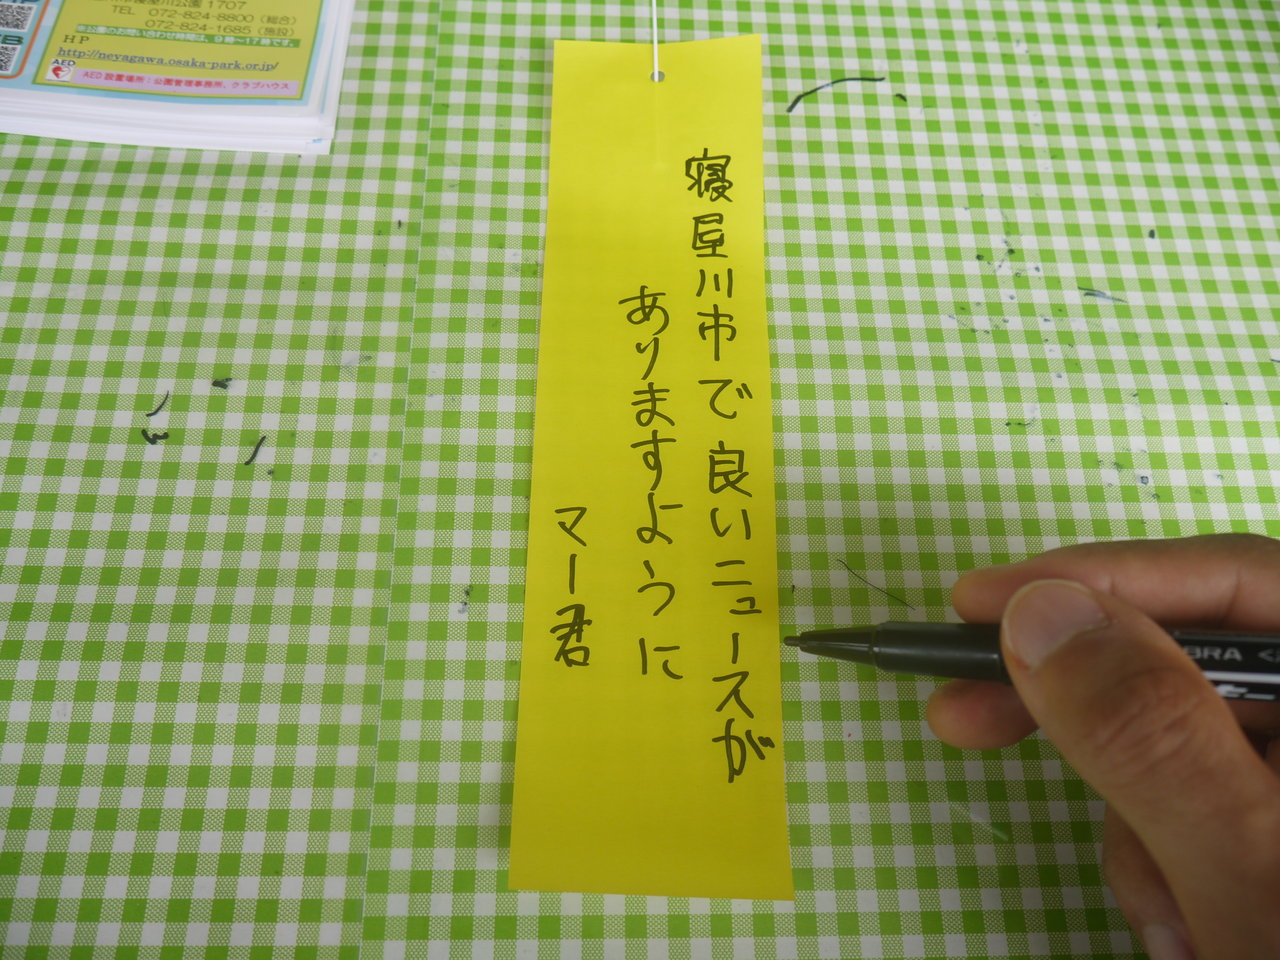 寝屋川公園1707
TEL 072-824-8800（総合）
072-824-1685（施設）
※公園のお問い合わせ時間は、9時～17時です。
HP
http://neyagawa.osaka-park.or.jp/
AED
AED設置場所：公園管理事務所、クラブハウス
寝屋川市で良いニュースが
ありますように
マー君
BRA